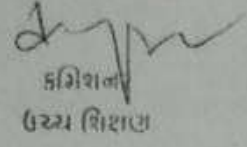 કમિશનર
ઉચ્ચ શિક્ષણ